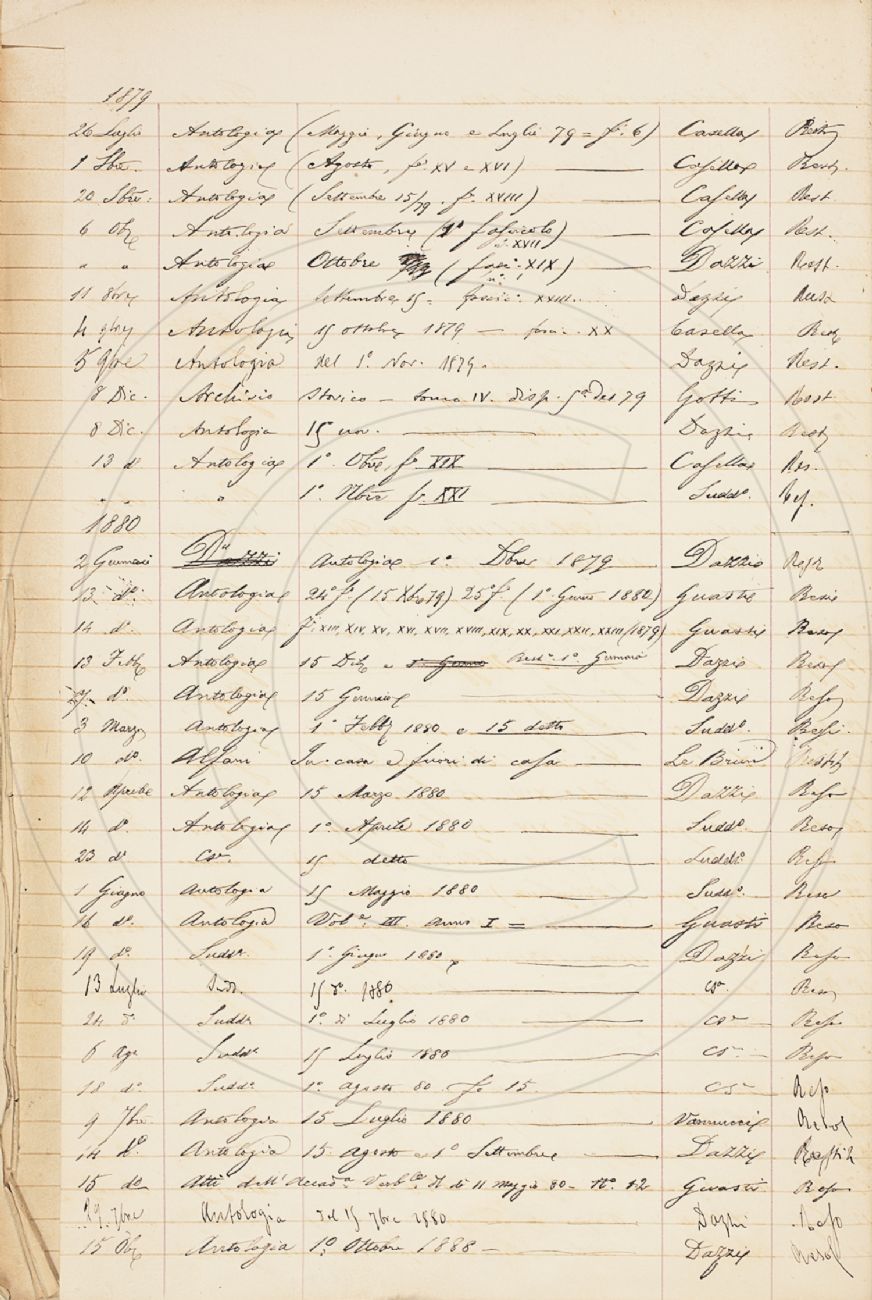 1879
26 Luglio Antologia (Maggio, Giugno e Luglio 79 = fi. 6) Casella Rest.
1 Sbre. Antologia (Agosto, fi. XV e XVI) Casella Rest.
20 Sbre: Antologia (Settembre 15/79. f. XVIII) Casella Rest.
6 Obre Antologia Settembre (1º fascicolo) Casella Rest.
n. XVII
" " Antologia Ottobre (fasc. XIX) Dazzi Rest.
nº 1
11 8bre Antologia Settembre 15 fascic. XXIII. Dazzi Rest
4 9bre Antologia 15 ottobre 1879 — fasc. XX Casella Rest
5 9bre Antologia del 1º. Nov. 1879. Dazzi Rest.
8 Dic. Archivio Storico — tomo IV. disp. 5ª del 79 Gotti Rest
8 Dic. Antologia 15 nov. Dazzi Rest
13 dº Antologia 1º. Obre, f. XIX Casella Res.
" " " 1º. Nbre f. XXI Suddº. Res.
1880
2 Gennaio Dazzi Antologia 1º. Dbre 1879 Dazzi Rest
13 dº. Antologia 24º f. (15 Xbre 79) 25º f. (1º. Genno 1880) Guasti Resto
14 dº. Antologia f. XIII, XIV, XV, XVI, XVII, XVIII, XIX, XX, XXI, XXII, XXIII (1879) Guasti Reso
13 Febb Antologia 15 Dicbe e 1º Genno Restº. 1º. Gennaio Dazzi Reso
27. dº. Antologia 15 Gennaio Dazzi Reso
3 Marzo Antologia 1º Febb 1880 e 15 detto Suddº.
10 dº. Alfani In casa e fuori di casa Le Brun
12 Aprile Antologia 15 Marzo 1880 Dazzi Reso
14 dº. Antologia 1º. Aprile 1880 Suddº. Reso
23 dº Csª. 15 detto Suddº. Reso
1 Giugno Antologia 15 Maggio 1880 Suddº. Reso
16 dº. Antologia Volº. III. Anno I = Guasti Reso
19 dº. Suddª. 1º. Giugno 1880 Dazzi Reso
13 Luglio Sudd. 15 dº. 1880 Csº Reso
24 dº Suddª 1º. di Luglio 1880 Csº Reso
6 Ago Suddª. 15 Luglio 1880 Csº Reso
18 dº Suddª. 1º. agosto 80 fº 15 Csº Reso
9 7bre Antologia 15 Luglio 1880 Vannucci Reso
14 dº Antologia 15 agosto e 1º Settembre Dazzi
15 dº Atti dell' Accadª. di 11 Maggio 80 — Nº. 12 Guasti Reso
29. 7bre Antologia del 15 7bre 1880 Dazzi Reso
15 Obre Antologia 1º. Ottobre 1888 — Dazzi Reso